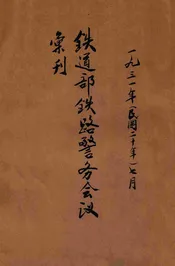 一九三一年(民國二十年)七月
鉄道部鉄路警务会议
彙刊